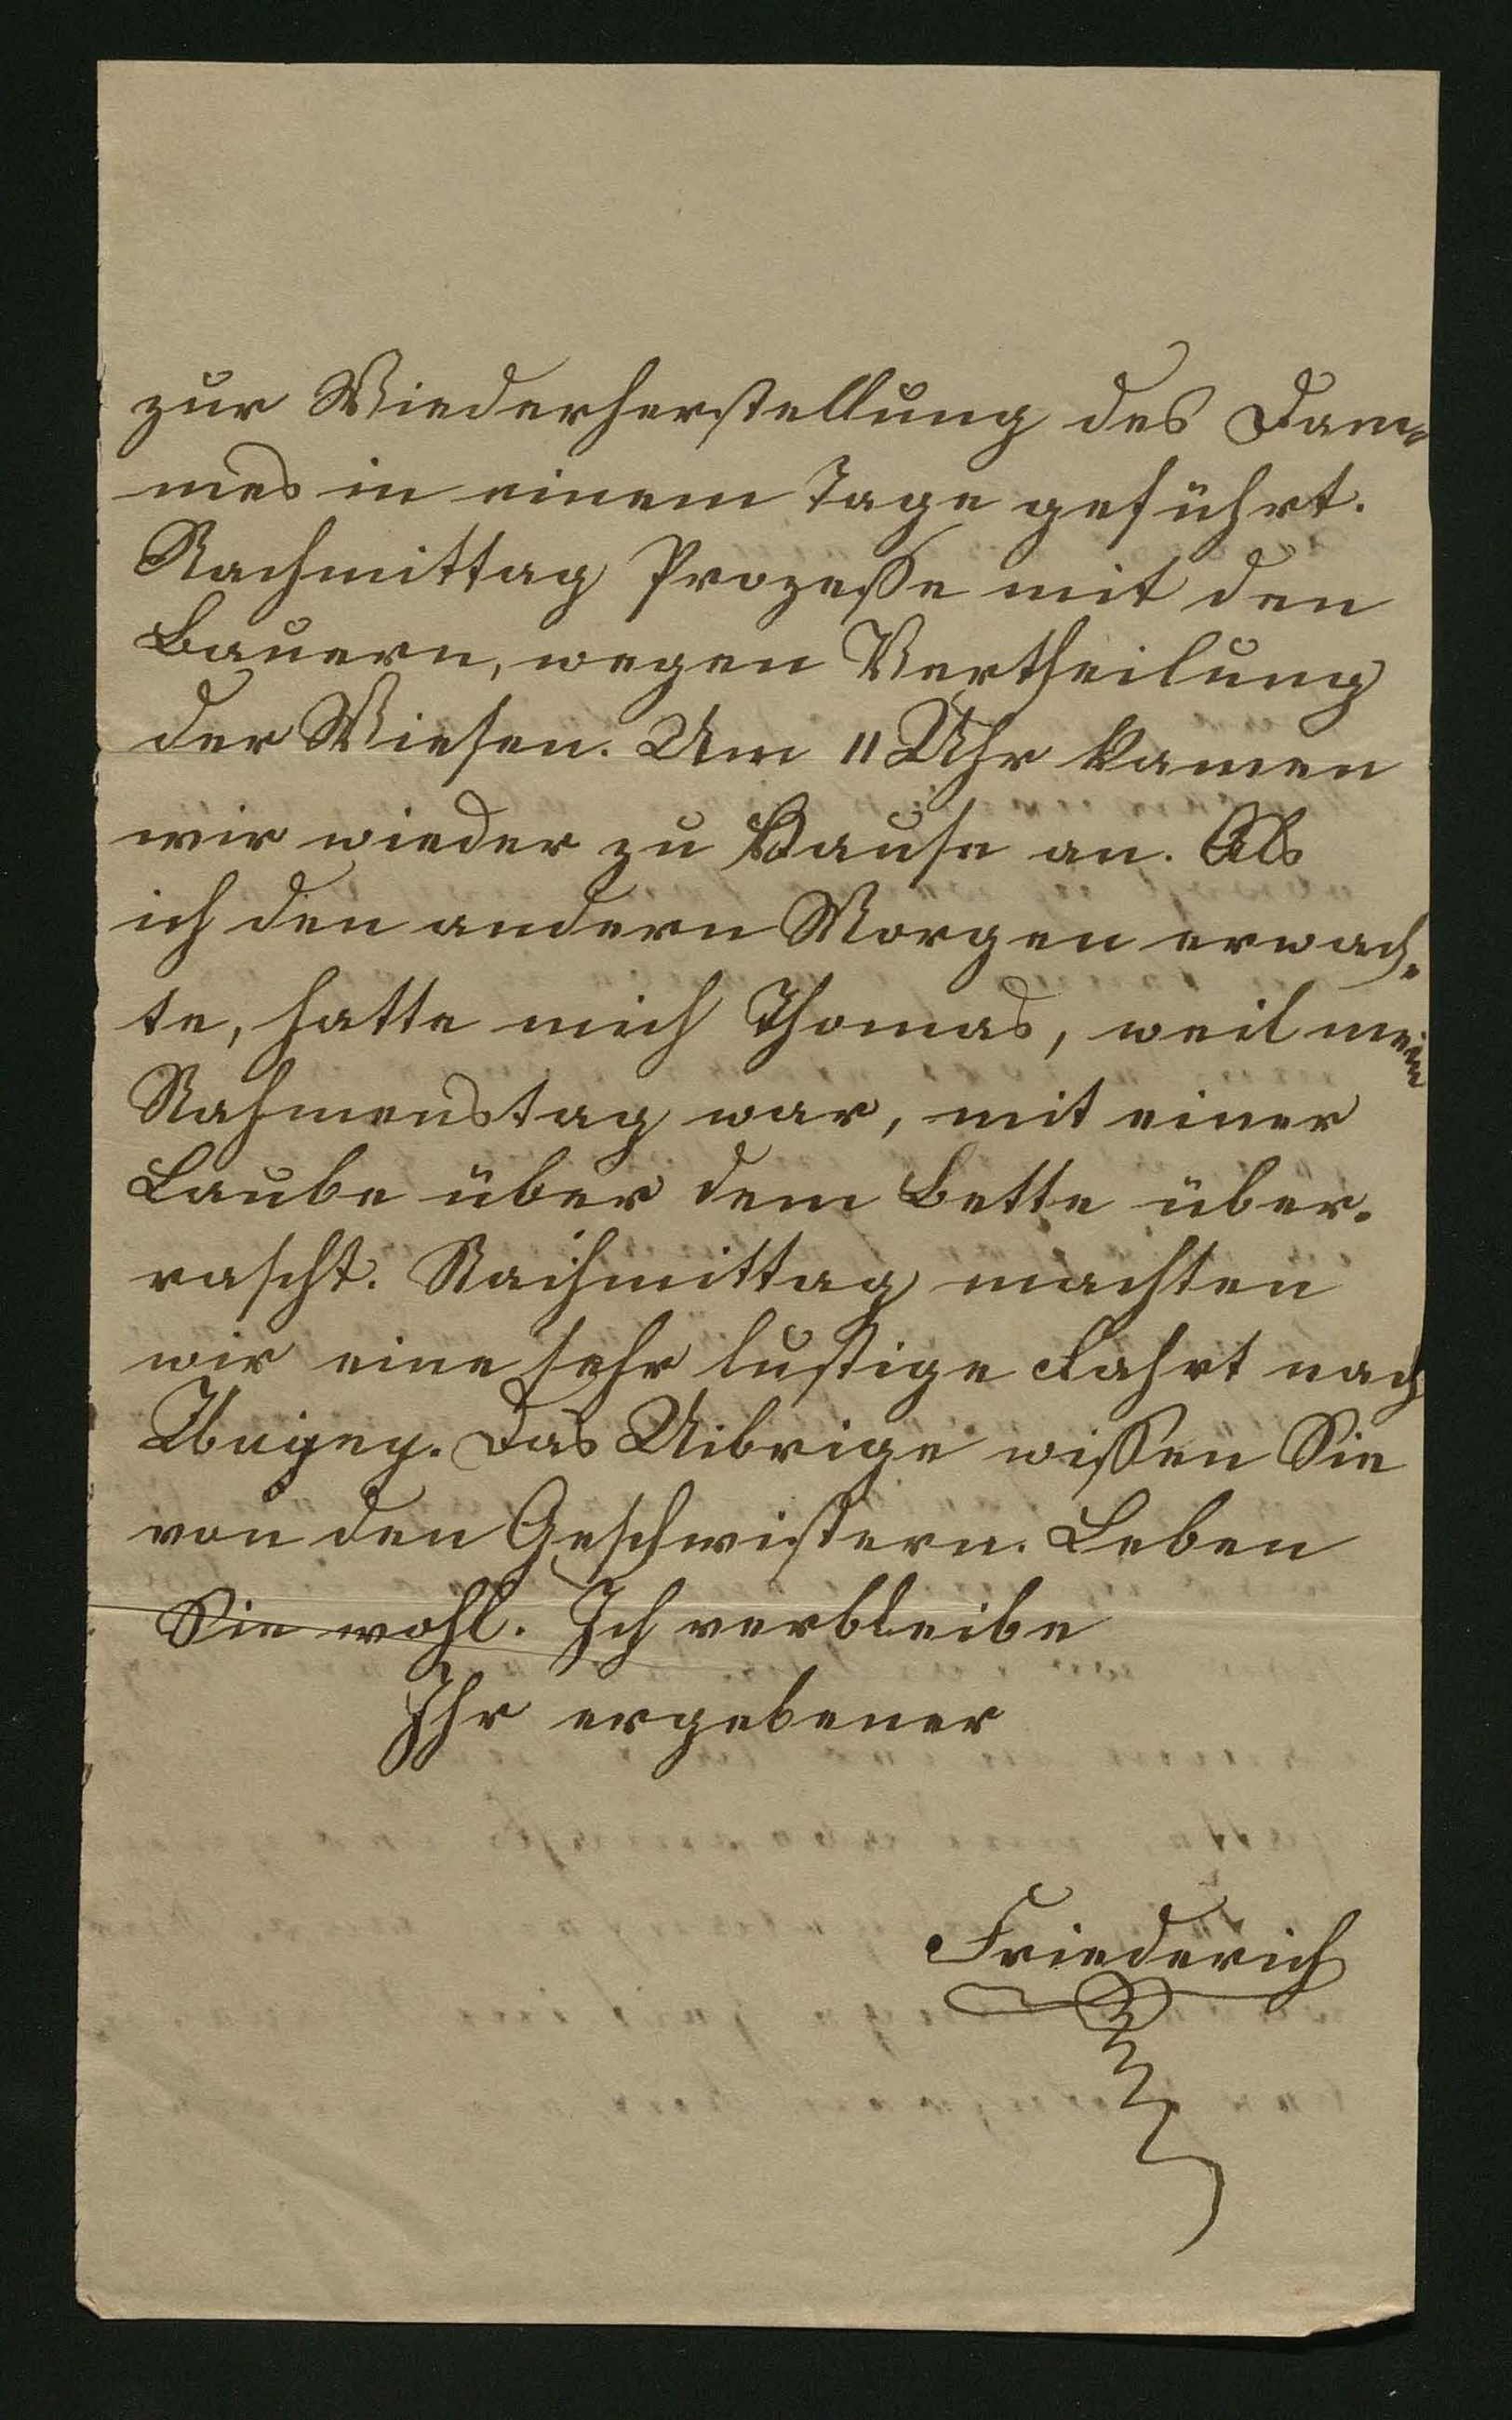 zur Wiederherstellung des Dam-
mes in einem Tage geführt.
Nachmittag Prozesse mit den
Bauern, wegen Vertheilung
der Wiesen. Um 11 Uhr kamen
wir wieder zu Hause an. Als
ich den andern Morgen erwach-
te, hatte mich Thomas, weil mein
Nahmenstag war, mit einer
Laube über dem Bette über-
rascht. Nachmittag machten
wir eine sehr lustige Fahrt nach
Das Uibrige wissen Sie
von den Geschwistern. Leben
Sie wohl. Ich verbleibe
Ihr ergebener
Friederich